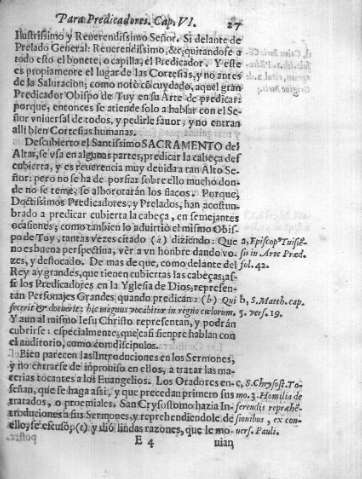 Para Predicadores. Cap. VI. 27
Ilustrissimo y Reuerendissimo Señor. Si delante de
Prelado General: Reuerendissimo, &c, quitandose a
todo esto el bonete, o capilla, el Predicador. Y este
es propiamente el lugar de las Cortesias, y no antes
de la Salutacion, como notò cuydado, aquel gran
Predicador Obispo de Tuy en su Arte de predicar:
porque, entonces se atiende solo a hablar con el Se-
ñor vniuersal de todos, y pedirle fauor; y no entran
alli bien Cortesias humanas.
Descubierto el Santissimo SACRAMENTO del
Altar, se vsa en algunas partes, predicar la cabeça des
cubierta, y es reuerencia muy deuida a tan Alto Se-
ñor: pero no se ha de porfiar sobre ello mucho don-
de no se teme, se alborotaràn los flacos. Porque,
Doctissimos Predicadores, y Prelados, han acostum-
brado a predicar cubierta la cabeça, en semejantes
ocasiones, como tambien lo aduirtio el mismo Obis-
po de Tuy, tantas vezes citado (a) diziendo: Que
no es buena perspectiua, vèr a vn hombre dando vo-
zes, y destocado. De mas de que, como delante del
Rey ay grandes, que tienen cubiertas las cabeças; as-
si los Predicadores en la Yglesia de Dios, represen-
tan Personajes Grandes quando predican: (b) Qui
fecerit & docuerit: hic magnus vocabitur in regno cœlorum.
Y aun al mismo Iesu Christo representan, y podràn
cubrirse: especialmente, que casi siempre hablan con
el auditorio, como con discipulos.
Bien parecen las Introducciones en los Sermones,
y no entrarse de improuiso en ellos, a tratar las ma-
terias tocantes a los Euangelios. Los Oradores en-
señan, que se haga assi, y que precedan primero sus
tratados, o proemiales. San Crysostomo hazia In-
troduciones a sus Sermones, y reprehendiendole de
ello, se escusò, (c) y diò lindas razones, que le mo-
E 4 uian
a, Episcop Tuisē-
sis in Arte Præd.
fol. 42.
b, S. Matth. cap.
5. vers. 19.
c, S. Chrysost. To-
mo. 3. Homilia de
ferendis reprahē-
sionibus, ex con-
uers. Pauli.